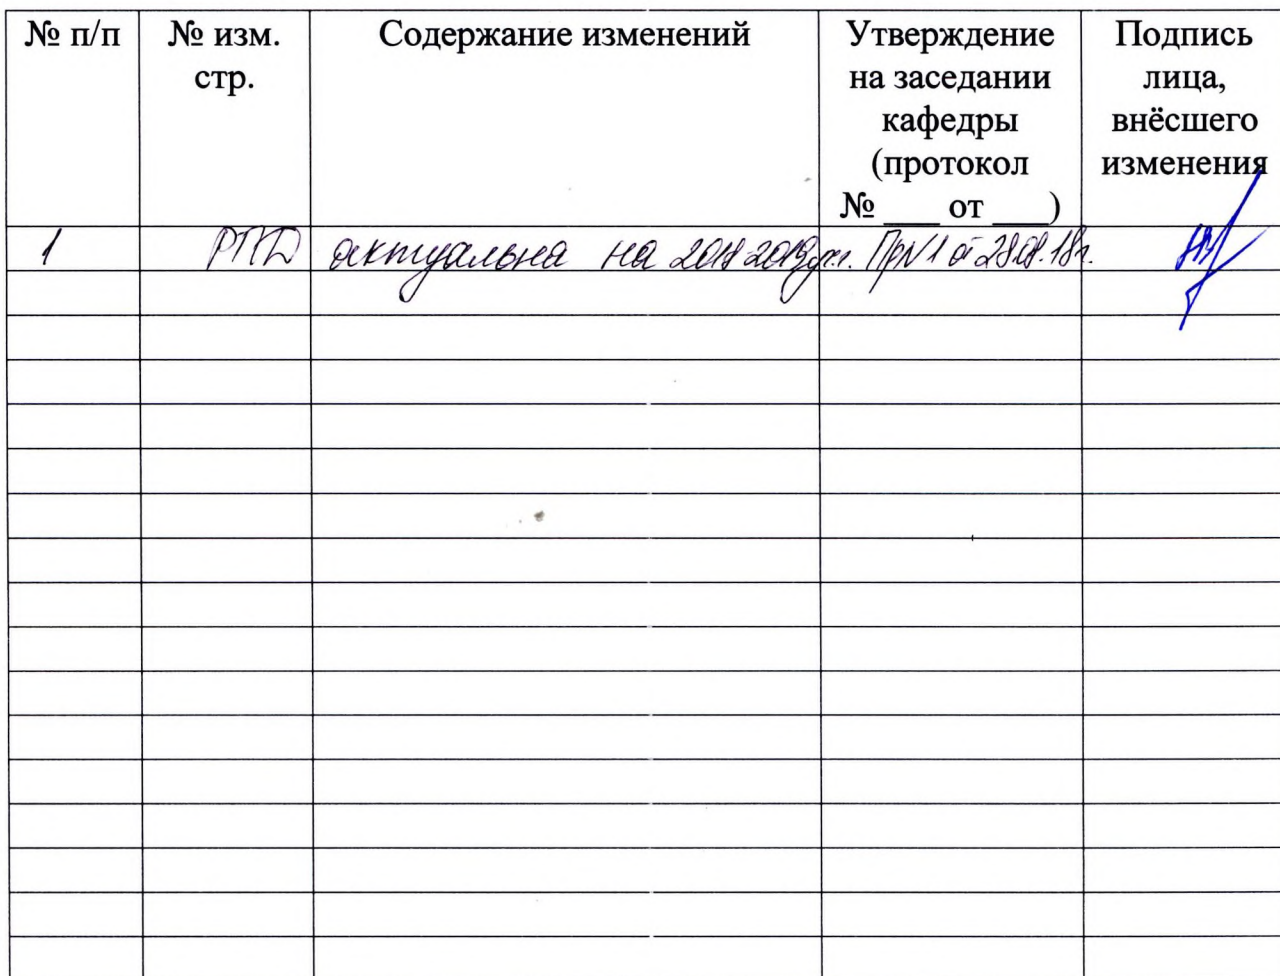 № п/п № изм. стр. Содержание изменений Утверждение на заседании кафедры (протокол № ___ от ___) Подпись лица, внёсшего изменения
1 РПД актуальна на 2018-2019 уч.г. Пр N1 от 28.08.18г.